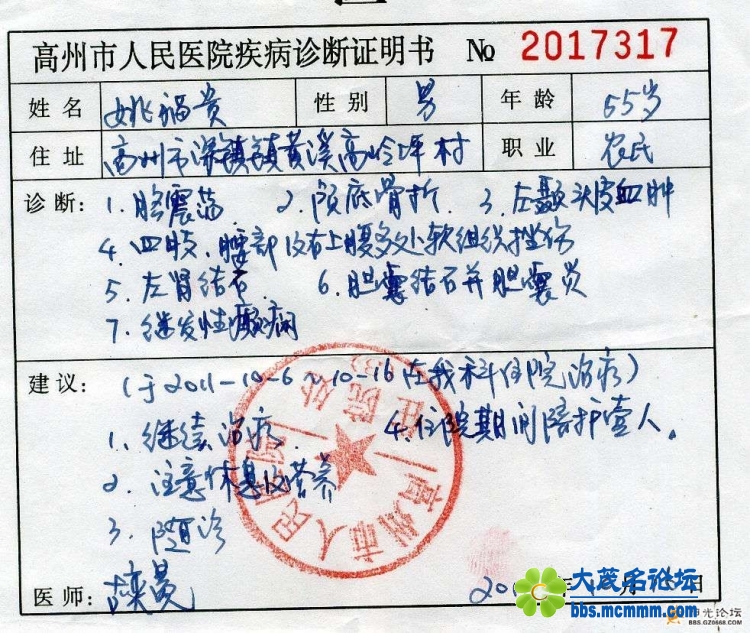 高州市人民医院疾病诊断证明书 № 2017317
姓名 姚福贵 性别 男 年龄 55岁
住址 高州市深镇镇黄溪高岭坪村 职业 农民
诊断: 1. 脑震荡 2. 颅底骨折 3. 左颞头皮血肿
4. 四肢、腰部及右上腹多处软组织挫伤
5. 左肾结石 6. 胆囊结石并胆囊炎
7. 继发性癫痫
建议: (于2011-10-6~10-16在我科住院治疗)
1. 继续治疗 4. 住院期间陪护壹人。
2. 注意休息及营养
3. 随诊
高州市人民医院
住院处
医师: 
大茂名论坛
bbs.mcmmm.com
阳光论坛
BBS.GZ0668.COM